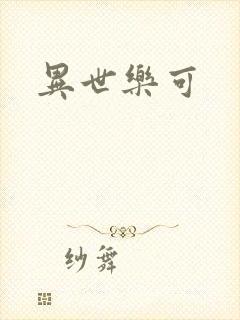 異世樂可
纱舞